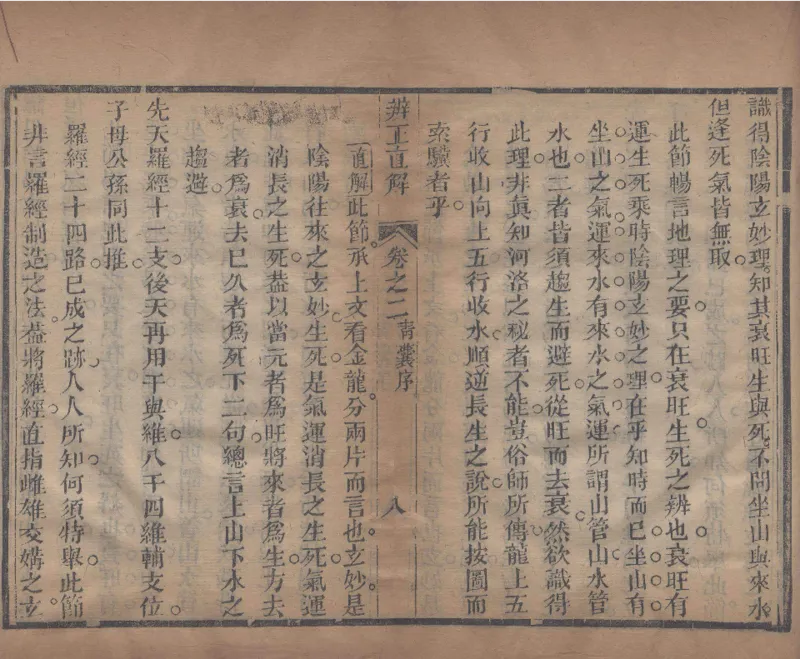 識得陰陽玄妙理知其衰旺生與死不問坐山與來水
但逢死氣皆無取
此節暢言地理之要只在衰旺生死之辨也衰旺有
運生死乘時陰陽玄妙之理在乎知時而已坐山有
坐山之氣運來水有來水之氣運所謂山管山水管
水也二者皆須趨生而避死從旺而去衰然欲識得
此理非眞知河洛之秘者不能豈俗師所傳龍上五
行收山向上五行收水順逆長生之說所能按圖而
索驥者乎
辨正直解 卷之二 青囊序 八
直解此節承上文看金龍分兩片而言也玄妙是
陰陽往來之玄妙生死是氣運消長之生死氣運
消長之生死葢以當元者爲旺將來者爲生方去
者爲衰去已久者爲死下二句總言上山下水之
趨避
先天羅經十二支後天再用干與維八干四維輔支位
子母公孫同此推
羅經二十四路已成之跡人人所知何須特舉此節
非言羅經制造之法葢將羅經直指雌雄交媾之玄